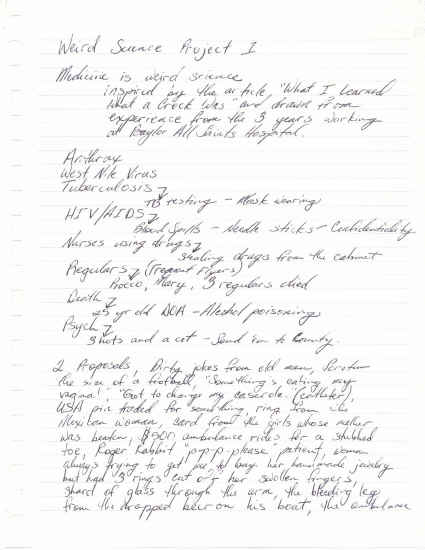 Weird Science Project 1
Medicine is weird science
inspired by the article, "What I Learned
What a Crock Was" and drawn from
experience from the 3 years working
at Baylor All Saints Hospital.
Anthrax
West Nile Virus
Tuberculosis
TB testing - Mask wearing
HIV/AIDS
Blood spills - Needle sticks - Confidentiality
Nurses using drugs
Stealing drugs from the cabinet
Regulars (frequent flyers)
Rocco, Mary, 3 regulars died
Death
25 yr old DOA - Alcohol poisoning
Psych
3 hots and a cot - Send 'em to County.
2 Proposals, Dirty jokes from old men, Scrotum
the size of a football, "Something's eating my
vagina!", "Got to change my casserole." (catheter),
USA pin traded for something, ring from the
Mexican women, card from the girls whose mother
was beaten, $500 ambulance rides for a stubbed
toe, Roger Rabbit "p-p-p-please" patient, woman
always trying to get me to buy her handmade jewelry
but had 3 rings cut off her swollen fingers,
shard of glass through the arm, the bleeding leg
from the dropped beer on his boat, the ambulance